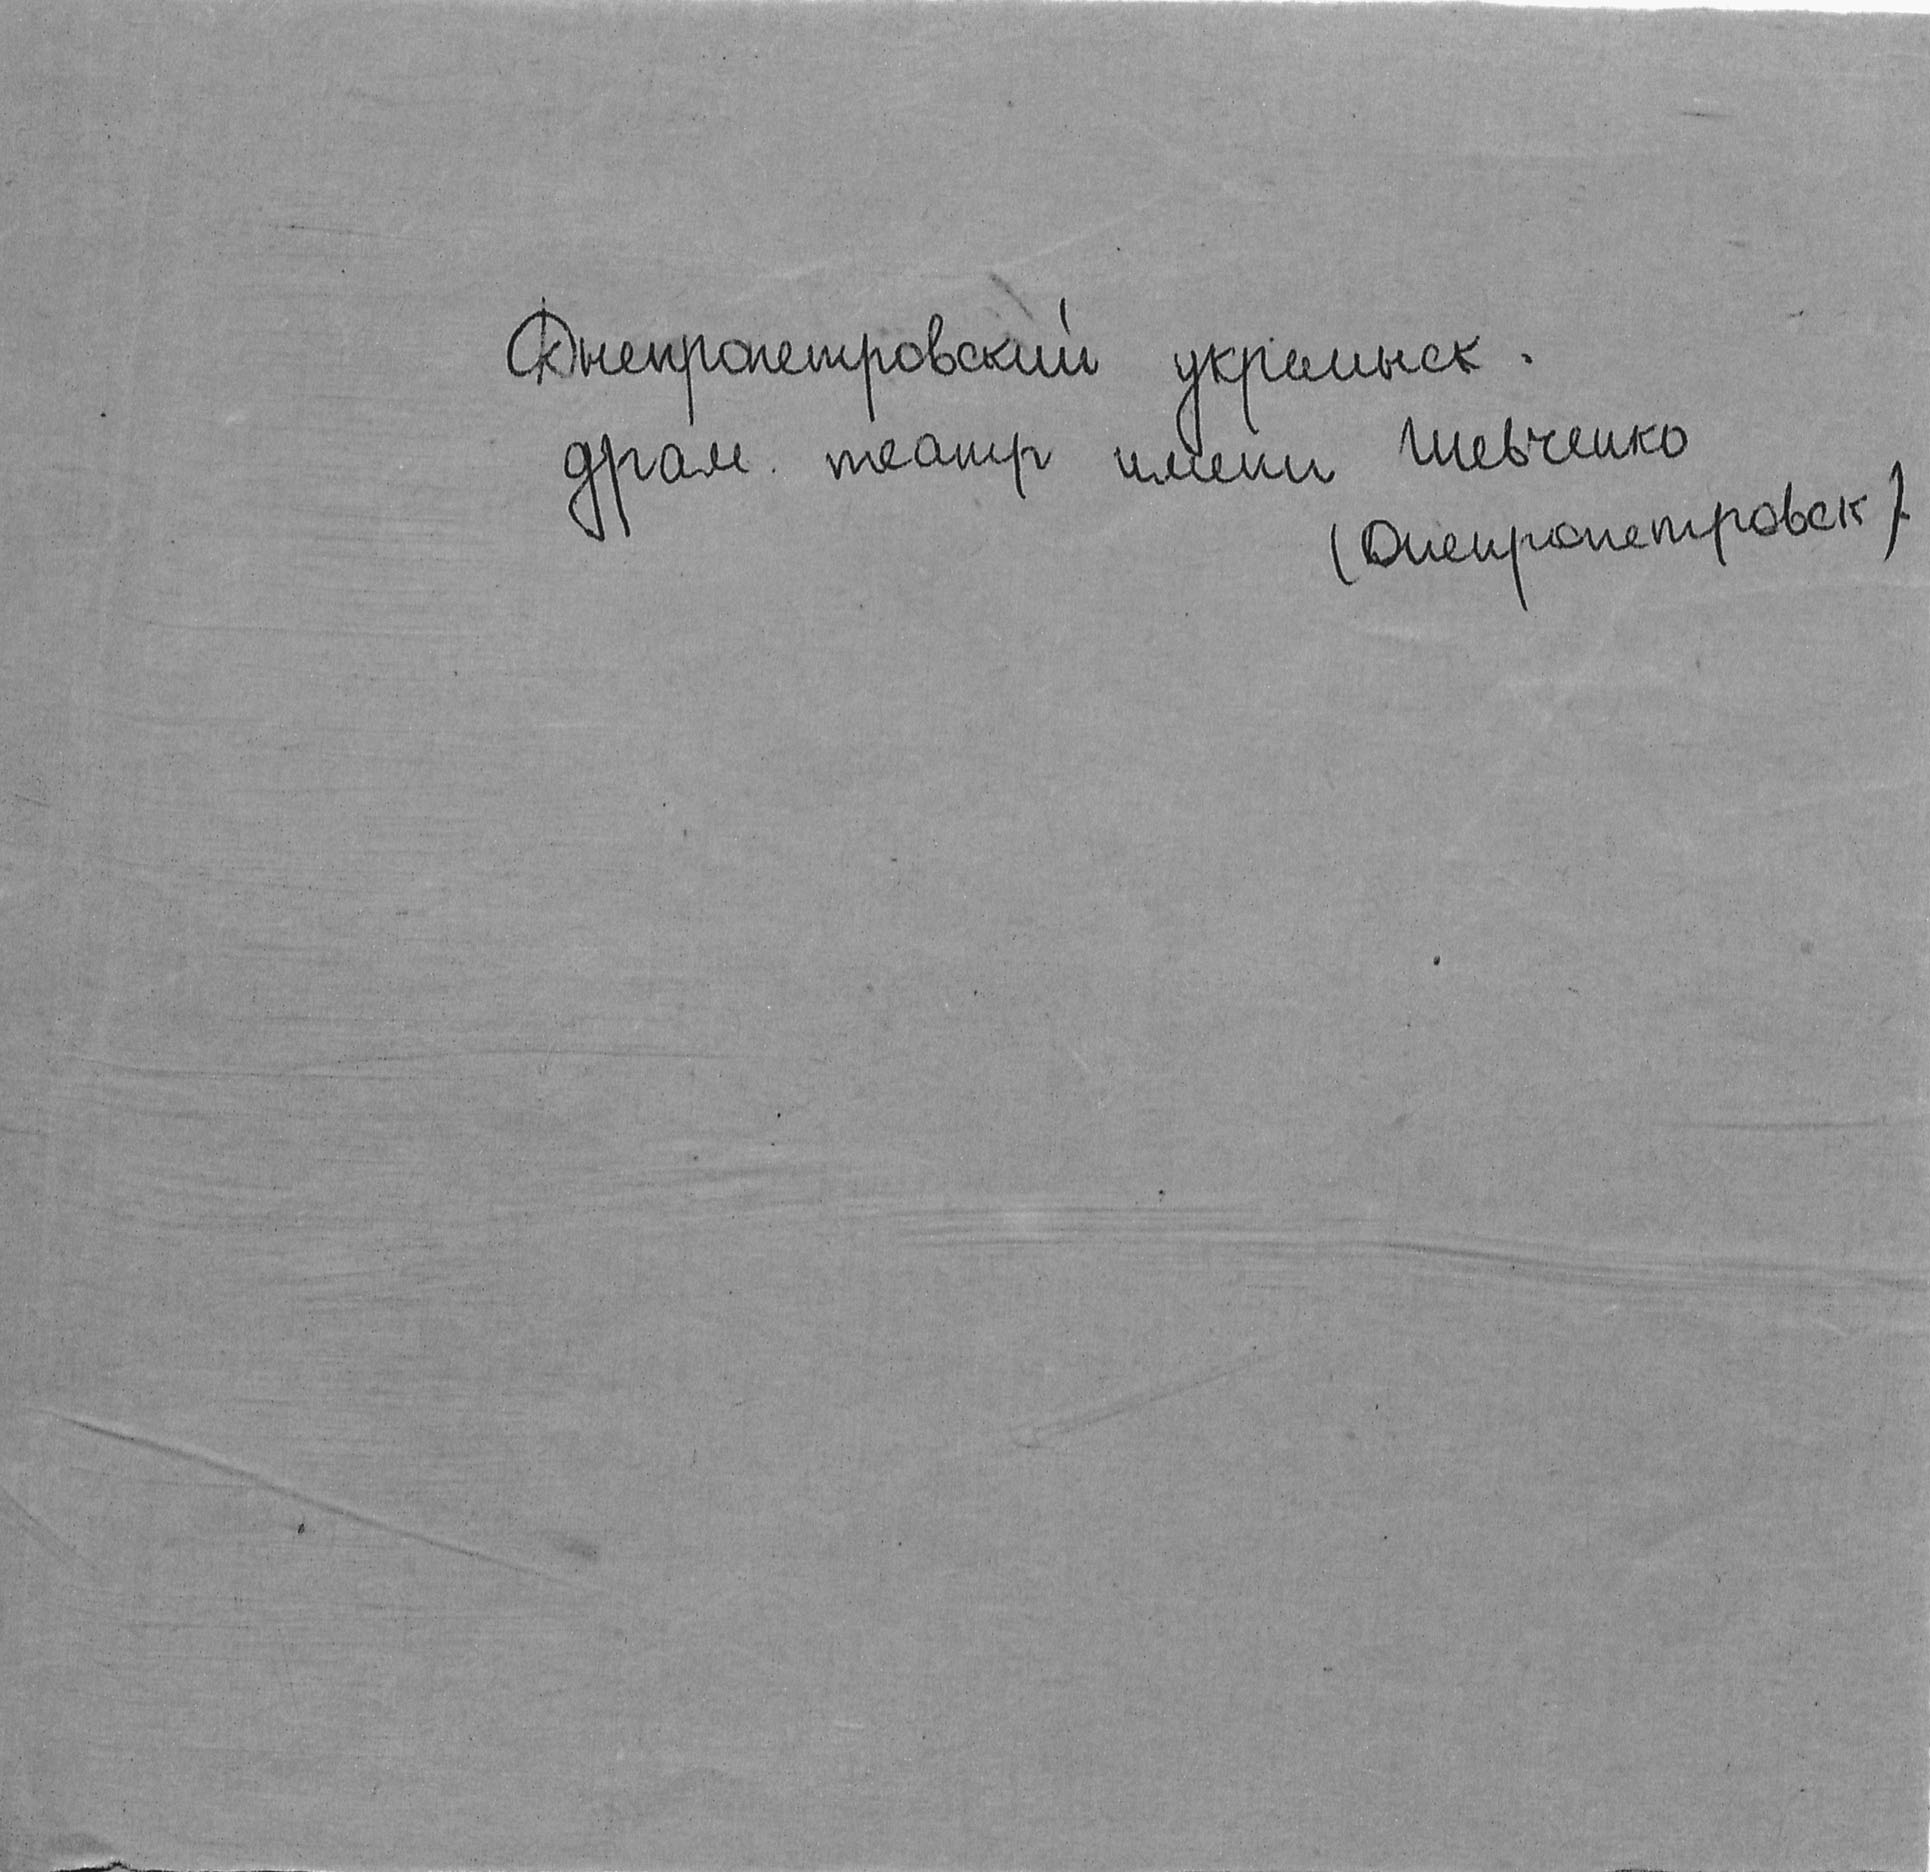 Днепропетровский украинск.
драм. театр имени Шевченко
(Днепропетровск)